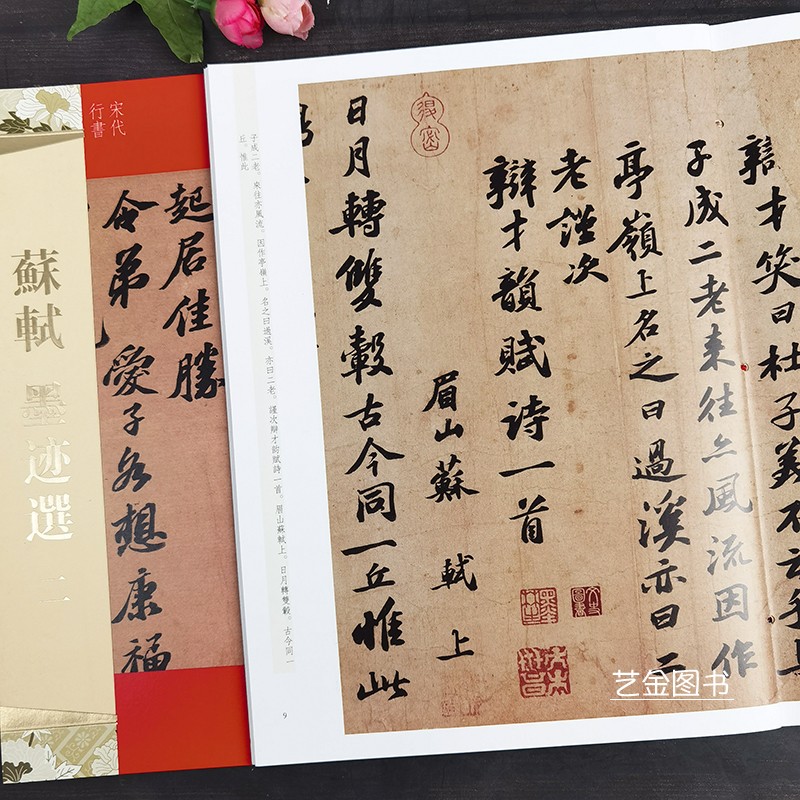 宋代
行書
蘇軾 墨迹選 二
起居佳勝
令弟愛子各想康福
辯才笑曰杜子美不云乎與
子成二老来往亦風流因作
亭嶺上名之曰過溪亦曰二
老謹次
辯才韻賦詩一首
眉山蘇軾上
日月轉雙轂古今同一丘惟此
子成二老。來往亦風流。因作亭嶺上。名之曰過溪。亦曰二老。謹次辯才韵賦詩一首。眉山蘇軾上。日月轉雙轂。古今同一
丘。惟此
9
艺金图书